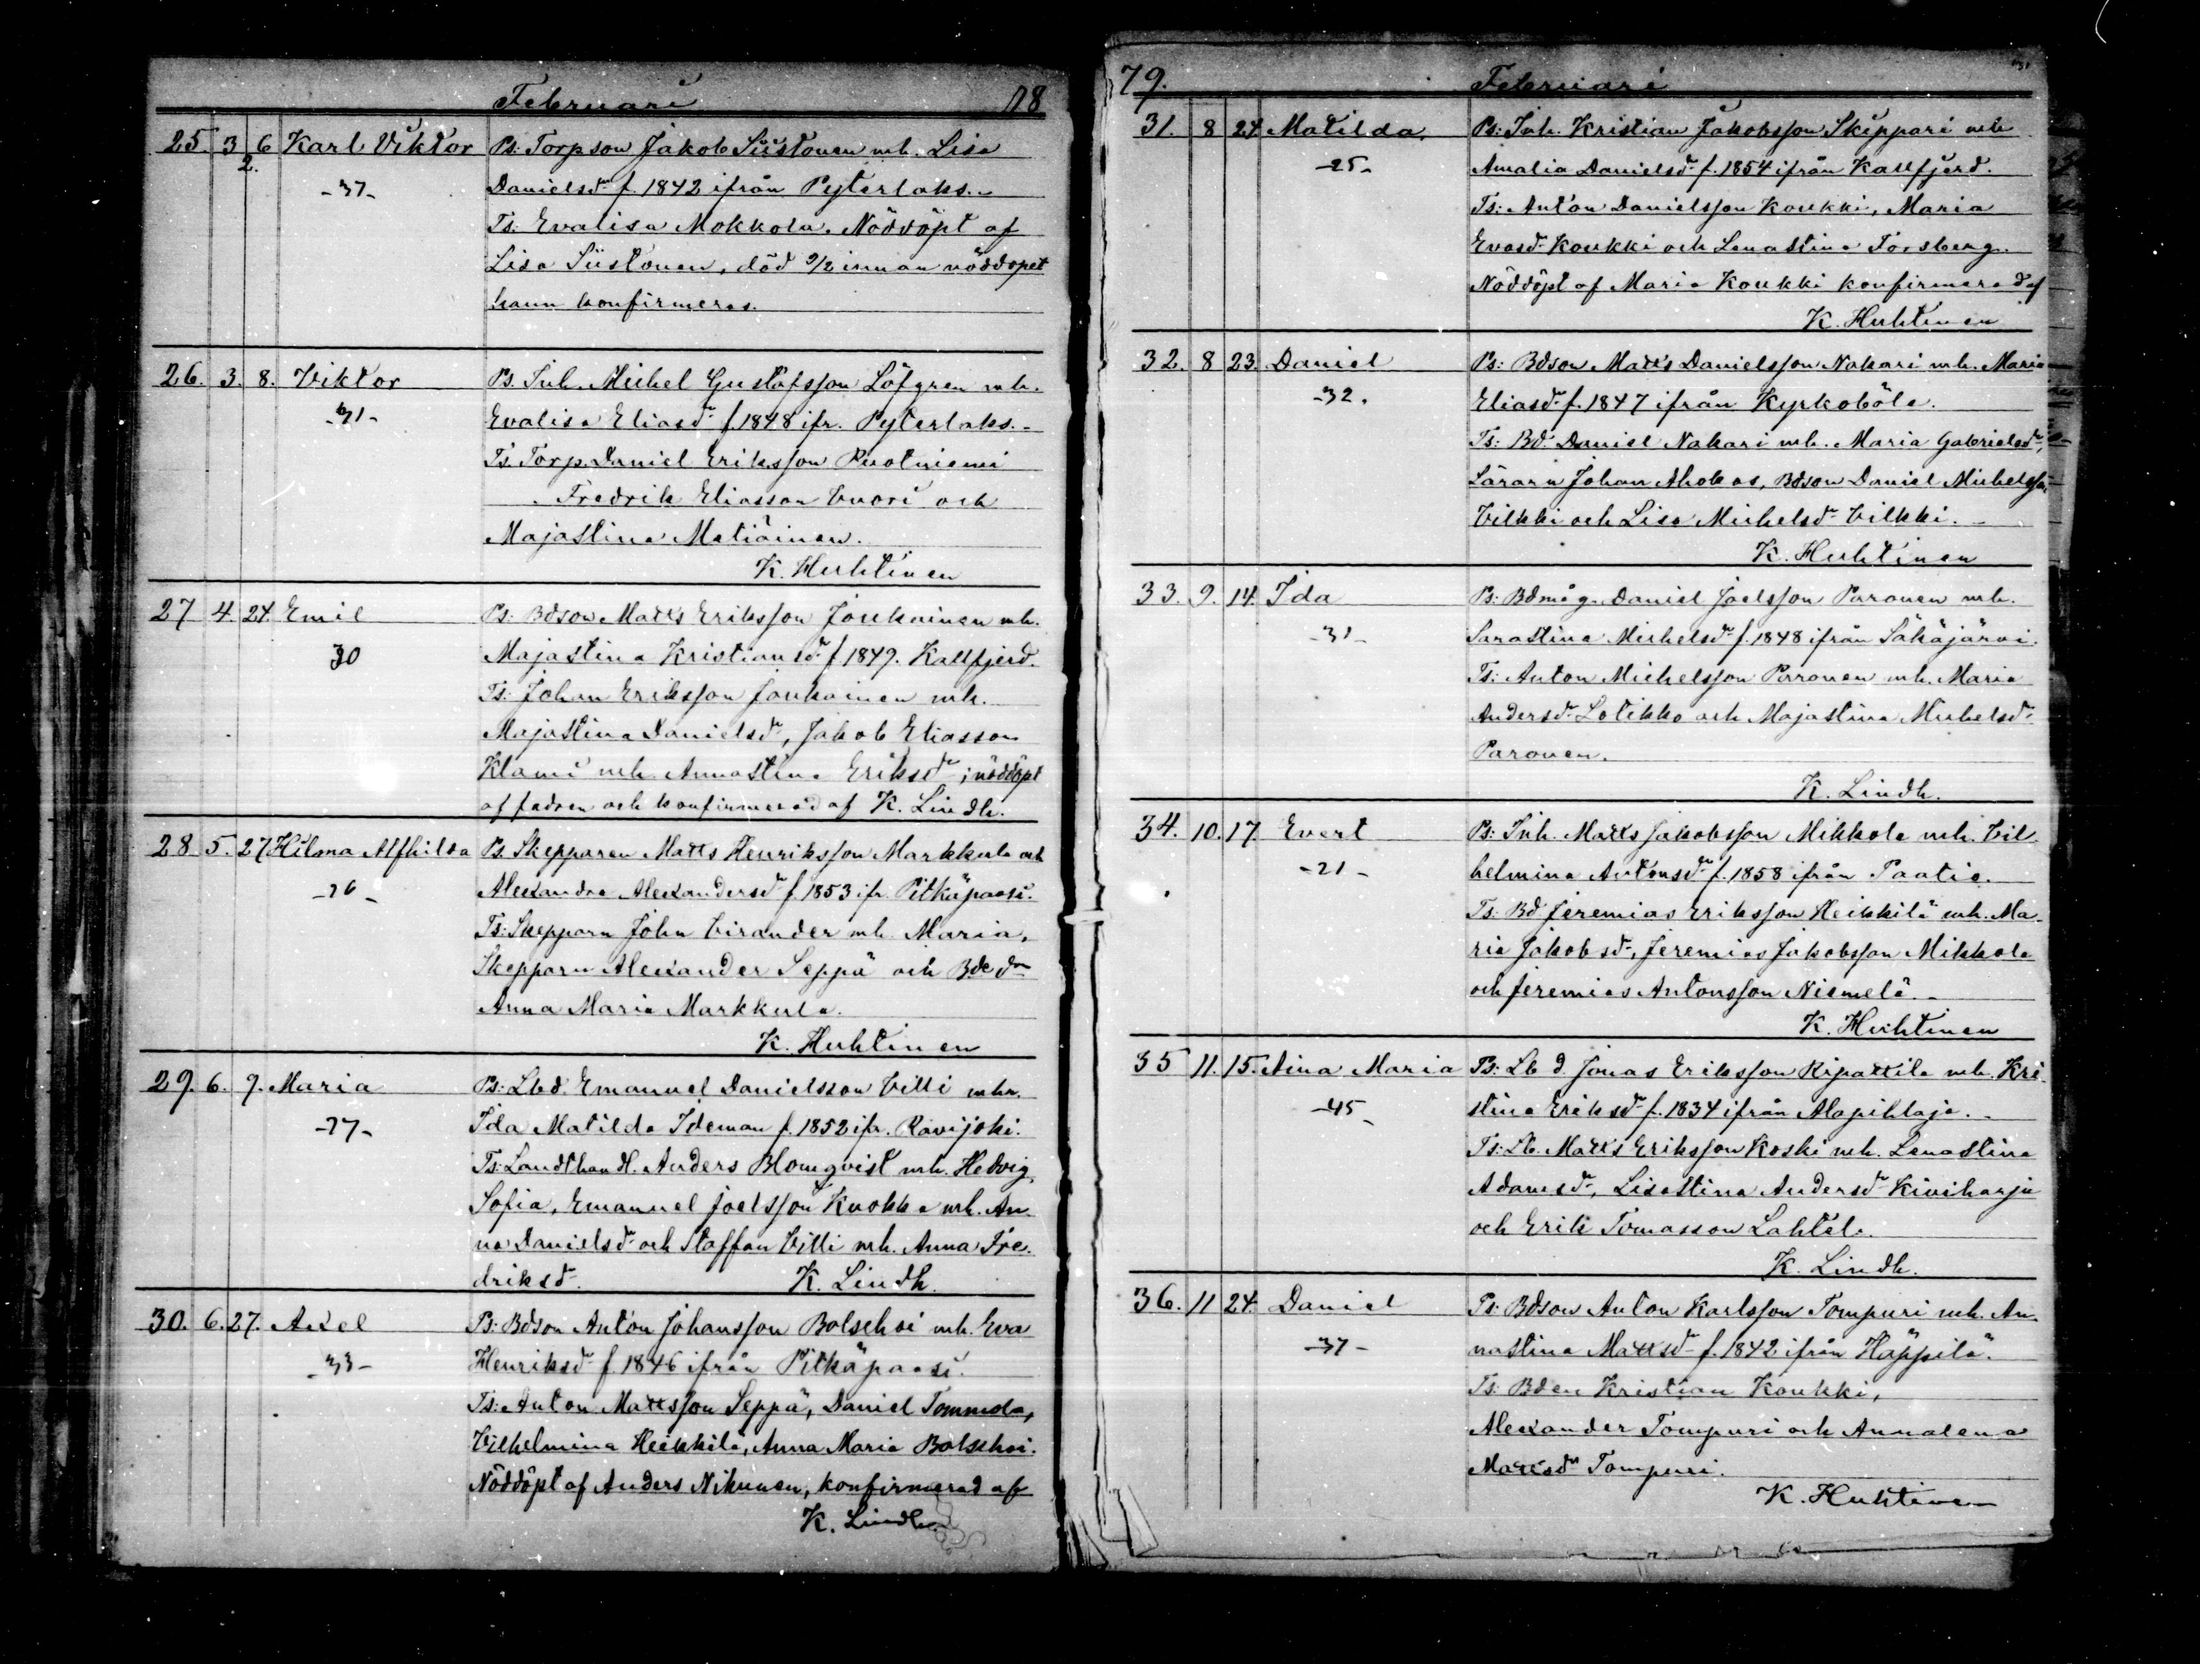 Februari 18
25. 3 6 Karl Viktor Ps. Torpson Jakob Siistonen mh. Lisa
2. -37- Danielsdr f. 1842 ifrån Pyterlaks.
Ts: Evalisa Mokkola. Nöddöpt af
Lisa Siistonen, död 9/2 innan nöddopet
hann konfirmeras.
26. 3. 8. Viktor Ps. Inh. Mickel Gustafsson Löfgren mh.
-31- Evalisa Eliasdr f. 1848 ifr. Pyterlaks.
Ts. Torp. Daniel Eriksson Ruotniemi
Fredrik Eliasson Vuori och
Majastina Matiäinen.
K. Huhtinen
27 4. 24. Emil Ps: Bdson Matts Eriksson Joukainen mh.
30 Majastina Kristiansdr f 1849. Kallfjerd.
Ts: Johan Eriksson Joukainen mh.
Majastina Danielsdr, Jakob Eliasson
Klami mh. Annastina Eriksdr; nöddöpt
af fadren och konfirmerad af K. Lindh.
28. 5. 27 Hilma Alfhilda Ps. Skepparen Matts Henriksson Markkula och
-26- Alexandra Alexandersdr f 1853 ifr. Pitkäpaasi.
Ts: Skepparn John Virander mh. Maria,
Skepparn Alexander Seppä och Bdedr
Anna Maria Markkula.
K. Huhtinen
29. 6. 9. Maria Ps: Lbd. Emanuel Danielsson Villi mh.
-27- Ida Matilda Ideman f. 1852 ifr. Ravijoki.
Ts: Landthandl. Anders Blomqvist mh. Hedvig
Sofia, Emanuel Joelsson Kuokka mh. An-
na Danielsdr och Staffan Villi mh. Anna Fre-
driksdr. K. Lindh.
30. 6. 27. Axel Ps: Bdson Anton Johansson Bolsehoi mh. Eva
-33- Henriksdr f. 1846 ifrån Pitkäpaasi.
Ts: Anton Mattsson Seppä, Daniel Tommola,
Vilhelmina Heikkilä, Anna Maria Bolsehoi.
Nöddöpt af Anders Nikunen, konfirmerad af
K. Lindh
79. Februari
31. 8 24 Matilda. Ps: Inh. Kristian Jakobsson Skippari mh
-25- Amalia Danielsdr f. 1854 ifrån Kallfjerd.
Ts: Anton Danielsson Koukki, Maria
Evasdr Koukki och Lenastina Forsberg.
Nöddöpt af Maria Koukki konfirmerad af
K. Huhtinen
32. 8 23. Daniel Ps: Bdson Matts Danielsson Nakari mh. Maria
-32. Eliasdr f. 1847 ifrån Kyrkoböle.
Ts: Bd. Daniel Nakari mh. Maria Gabrielsdr,
Läraren Johan Ahokas, Bdson Daniel Mickelsson
Vilkki och Lisa Mickelsdr Vilkki.
K. Huhtinen
33. 9. 14. Ida Ps: Bdmåg. Daniel Joelsson Paronen mh.
-31- Sarastina Mickelsdr f. 1848 ifrån Säkäjärvi.
Ts: Anton Michelsson Paronen mh. Maria
Andersdr Lotikko och Majastina Mickelsdr
Paronen.
K. Lindh.
34. 10. 17. Evert Ps: Inh. Matts Jakobsson Mikkola mh. Vil-
-21- helmina Antonsdr f. 1858 ifrån Paatio.
Ts: Bd Jeremias Eriksson Heikkilä mh. Ma-
ria Jakobsdr, Jeremias Jakobsson Mikkola
och Jeremias Antonsson Niemelä.
K. Huhtinen
35 11. 15. Aina Maria Ps: Lbd. Jonas Eriksson Ripattila mh. Kri-
-45- stina Eriksdr f. 1834 ifrån Alapihlaja.
Ts: Lb. Matts Eriksson Koski mh. Lenastina
Adamsdr, Lisastina Andersdr Kiviharju
och Erik Tomasson Lahtela.
K. Lindh.
36. 11 24. Daniel Ps: Bdson Anton Karlsson Tompuri mh. An-
-37- nastina Mattsdr f. 1842 ifrån Häppilä.
Ts: Bden Kristian Koukki,
Alexander Tompuri och Annalena
Mattsdr Tompuri.
K. Huhtinen